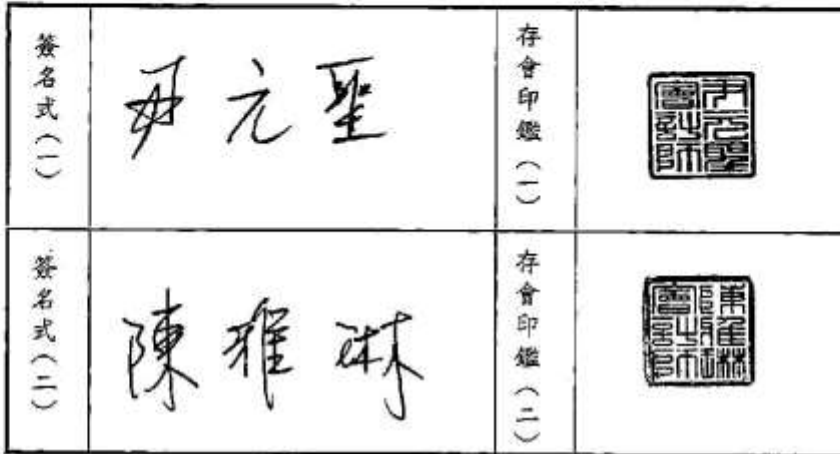 簽名式（一）
尹元聖
存會印鑑（一）
尹元聖會計師
簽名式（二）
陳雅琳
存會印鑑（二）
陳雅琳會計師